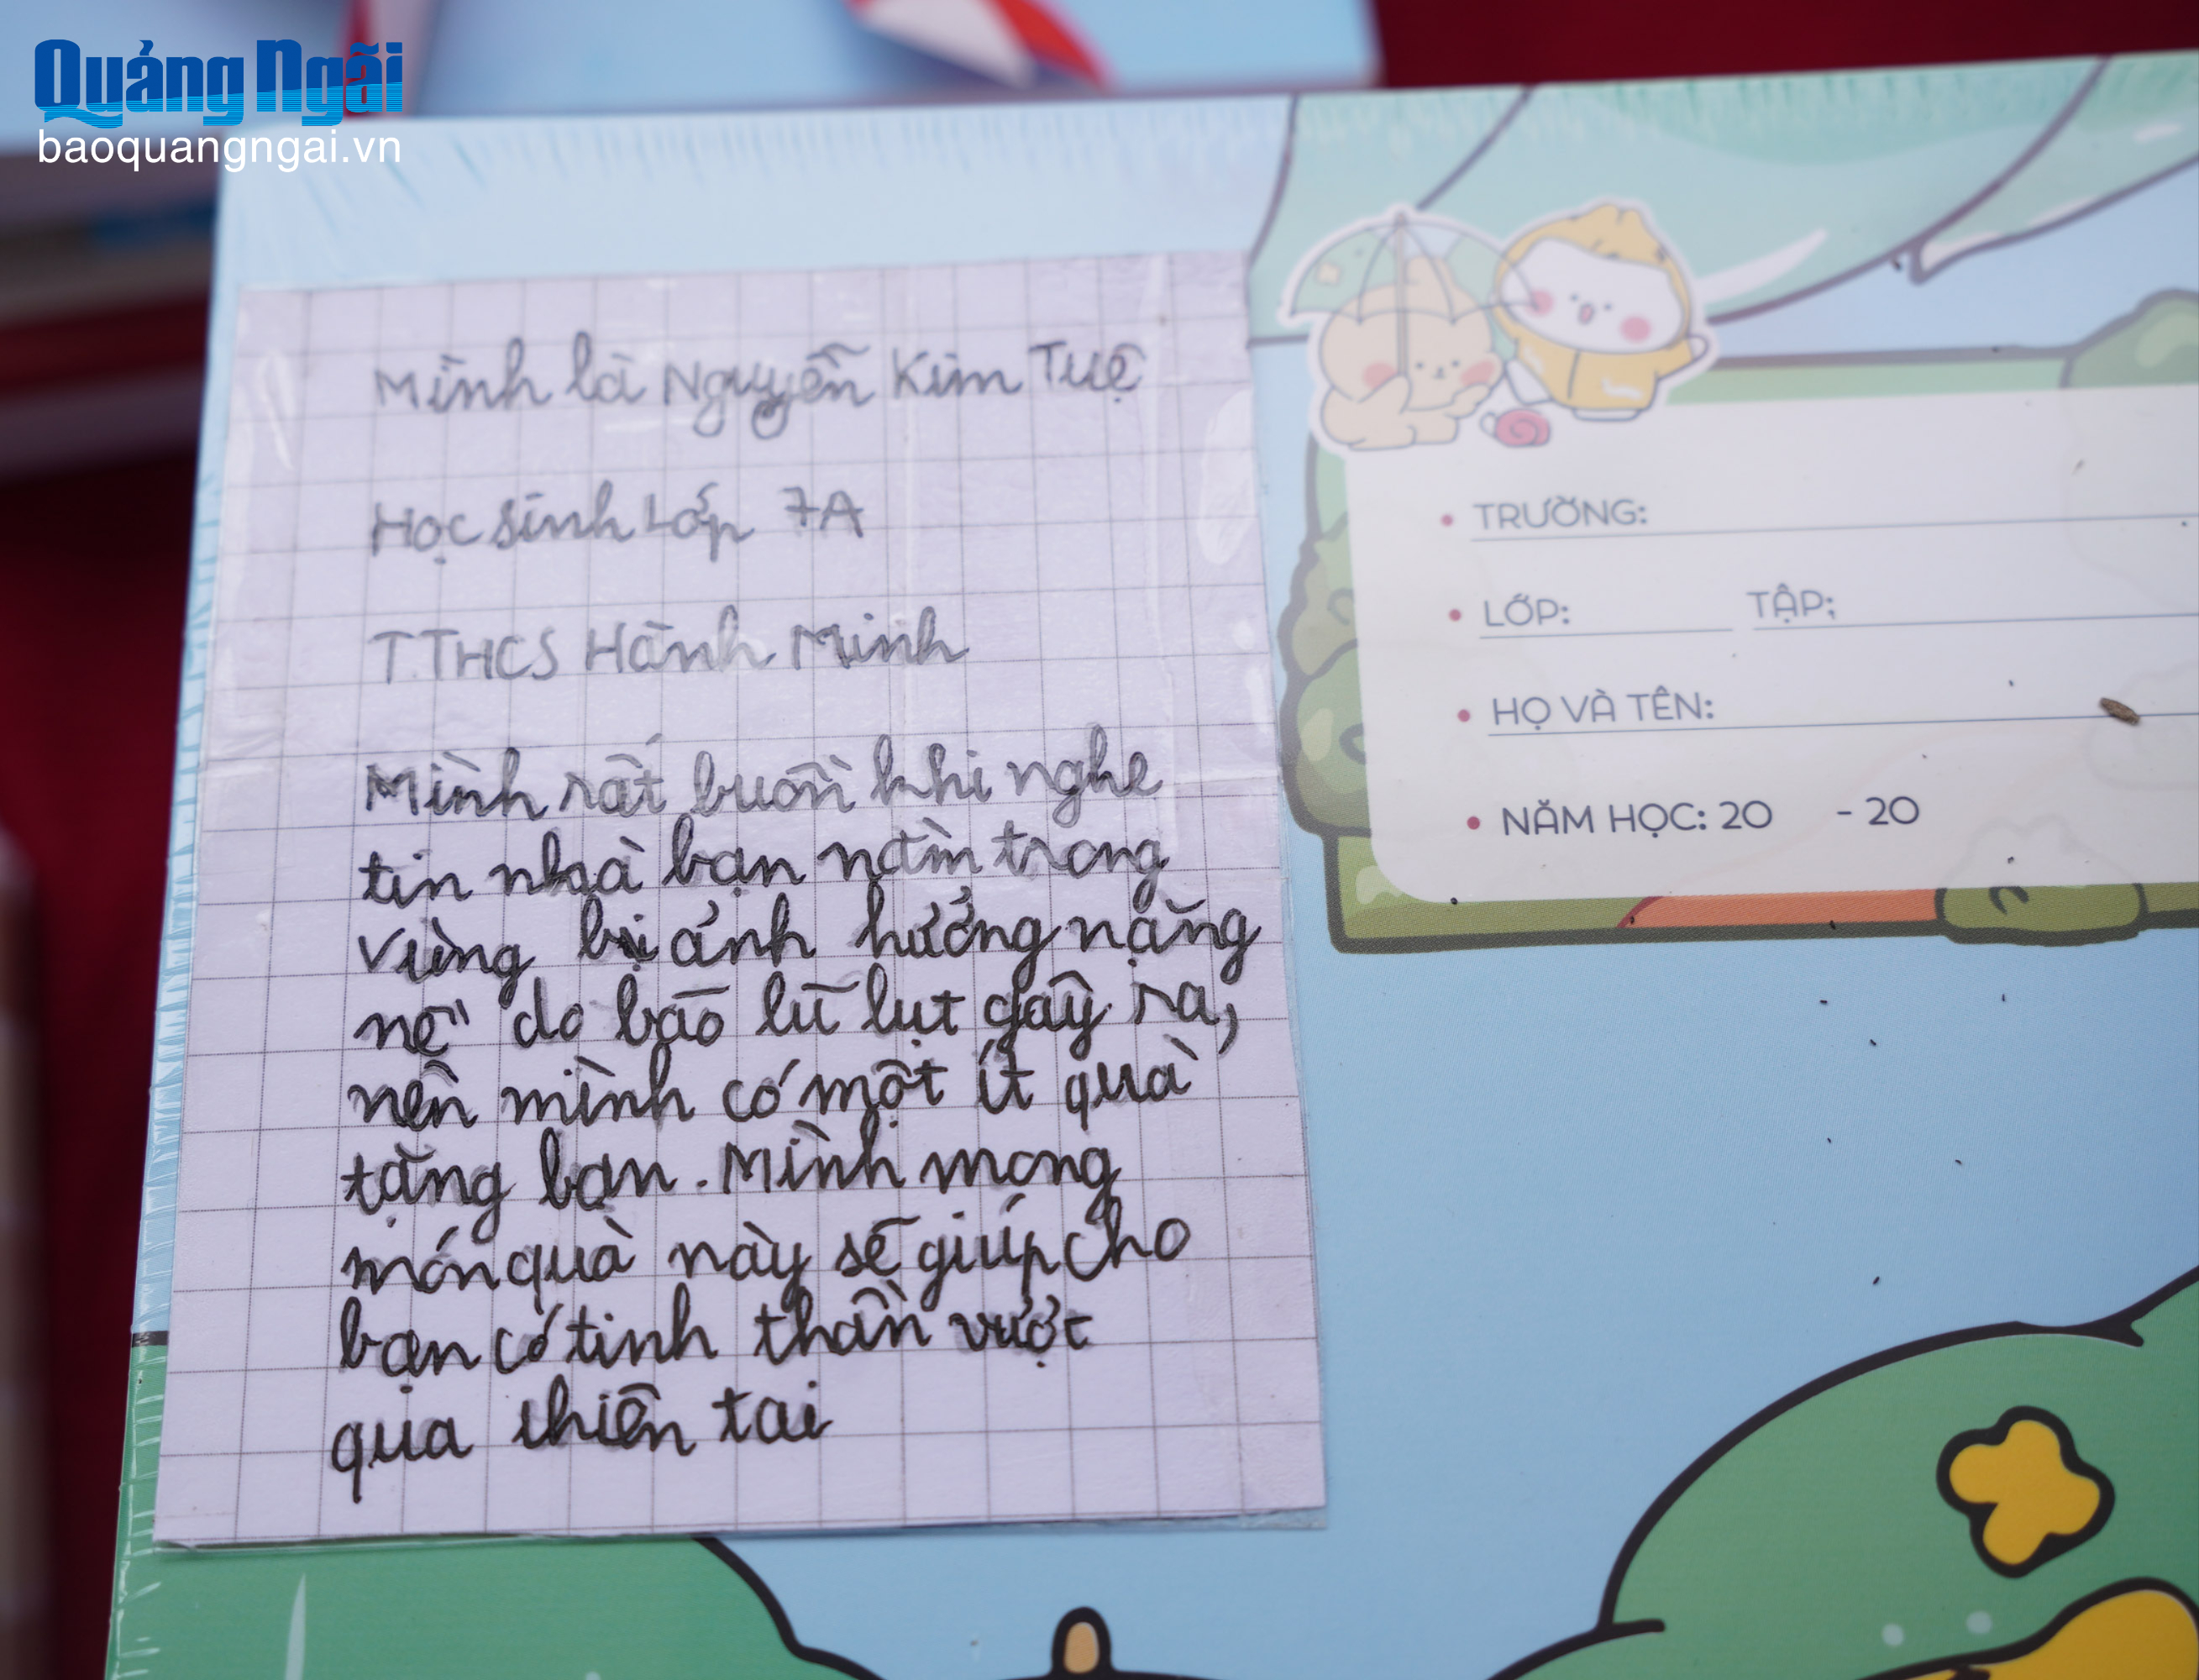 Quảng Ngãi
baoquangngai.vn
Mình là Nguyễn Kim Tuệ
Học sinh Lớp 7A
T.THCS Hành Minh
Mình rất buồn khi nghe
tin nhà bạn nằm trong
vùng bị ảnh hưởng nặng
nề do bão lũ lụt gây ra,
nên mình có một ít quà
tặng bạn. Mình mong
món quà này sẽ giúp cho
bạn có tinh thần vượt
qua thiên tai
TRƯỜNG:
LỚP: TẬP:
HỌ VÀ TÊN:
NĂM HỌC: 20 - 20